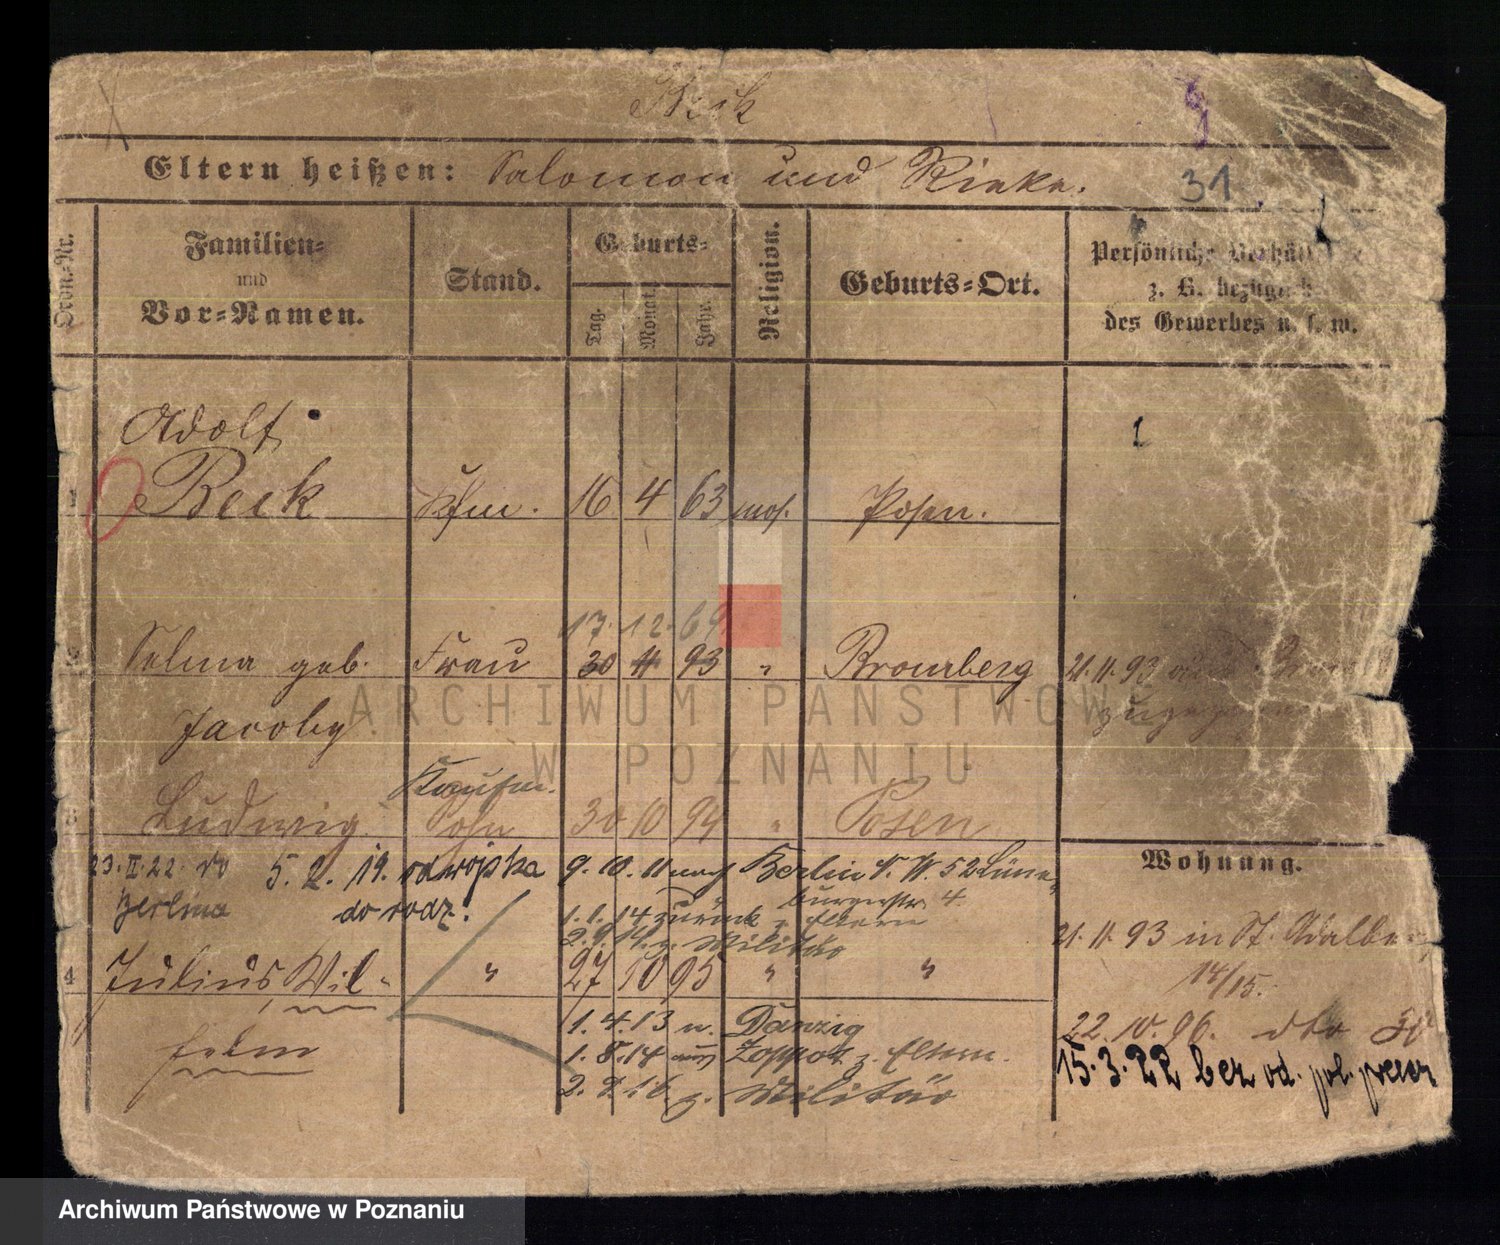 Beck
Eltern heißen: Salomon und Rieke.
31.
Ordn.-Nr.
Familien-
und
Vor-Namen.
Stand.
Geburts-
Tag.
Monat.
Jahr.
Religion.
Geburts-Ort.
Persönliche Verhältnisse
z. B. bezüglich
des Gewerbes u. s. w.
1
Adolf
Beck Kfm. 16 4 63 mos. Posen.
17. 12. 69
Selma geb. Frau 30 11 93 " Bromberg 21.11.93
Jacoby
Kaufm.
3 Ludwig Sohn 30 10 94 " Posen
Wohnung.
23.II.22. do 5. 2. 19. od wojska 9. 10. 11 nach Berlin N.W. 52 Lüne-
Berlina do rodz! burgerstr. 4.
1.1.14 zurück z. Eltern
2.9.14. z. Militär
21.11.93 in St. Adalbert
14/15.
4 Julius Wil- " 27 10 95 " "
helm
1. 4. 13 n. Danzig
22.10.96. dto
1. 5. 14 aus Zoppot z. Eltern.
15.3.22 bez od. pol.
z. Militär
ARCHIWUM PAŃSTWOWE
W POZNANIU
Archiwum Państwowe w Poznaniu